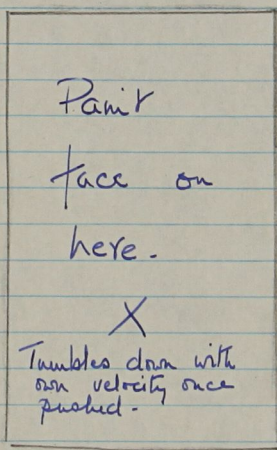 Paint
face on
here.
X
Tumbles down with
own velocity once
pushed.